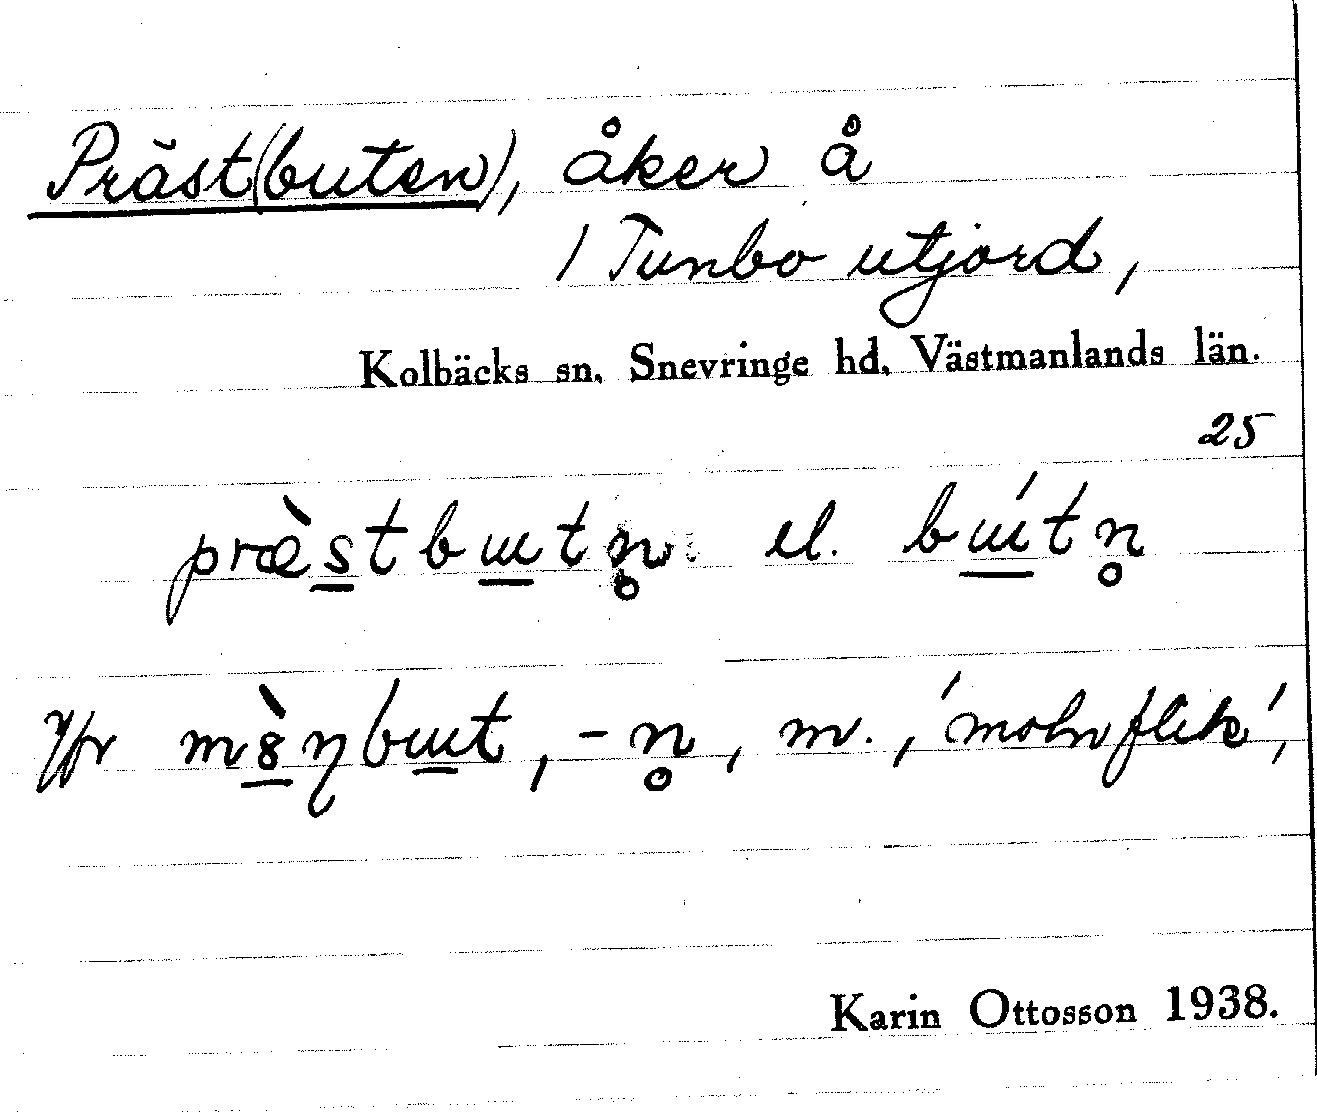 Präst(buten), åker å
/ Tunbo utjord,
Kolbäcks sn, Snevringe hd, Västmanlands län.
25
præ̀s̲tbɯ̲tn̥ el. bɯ̲́tn̥
Jfr m
bɯ̲t, -n̥, m., 'molnflik',
Karin Ottosson 1938.